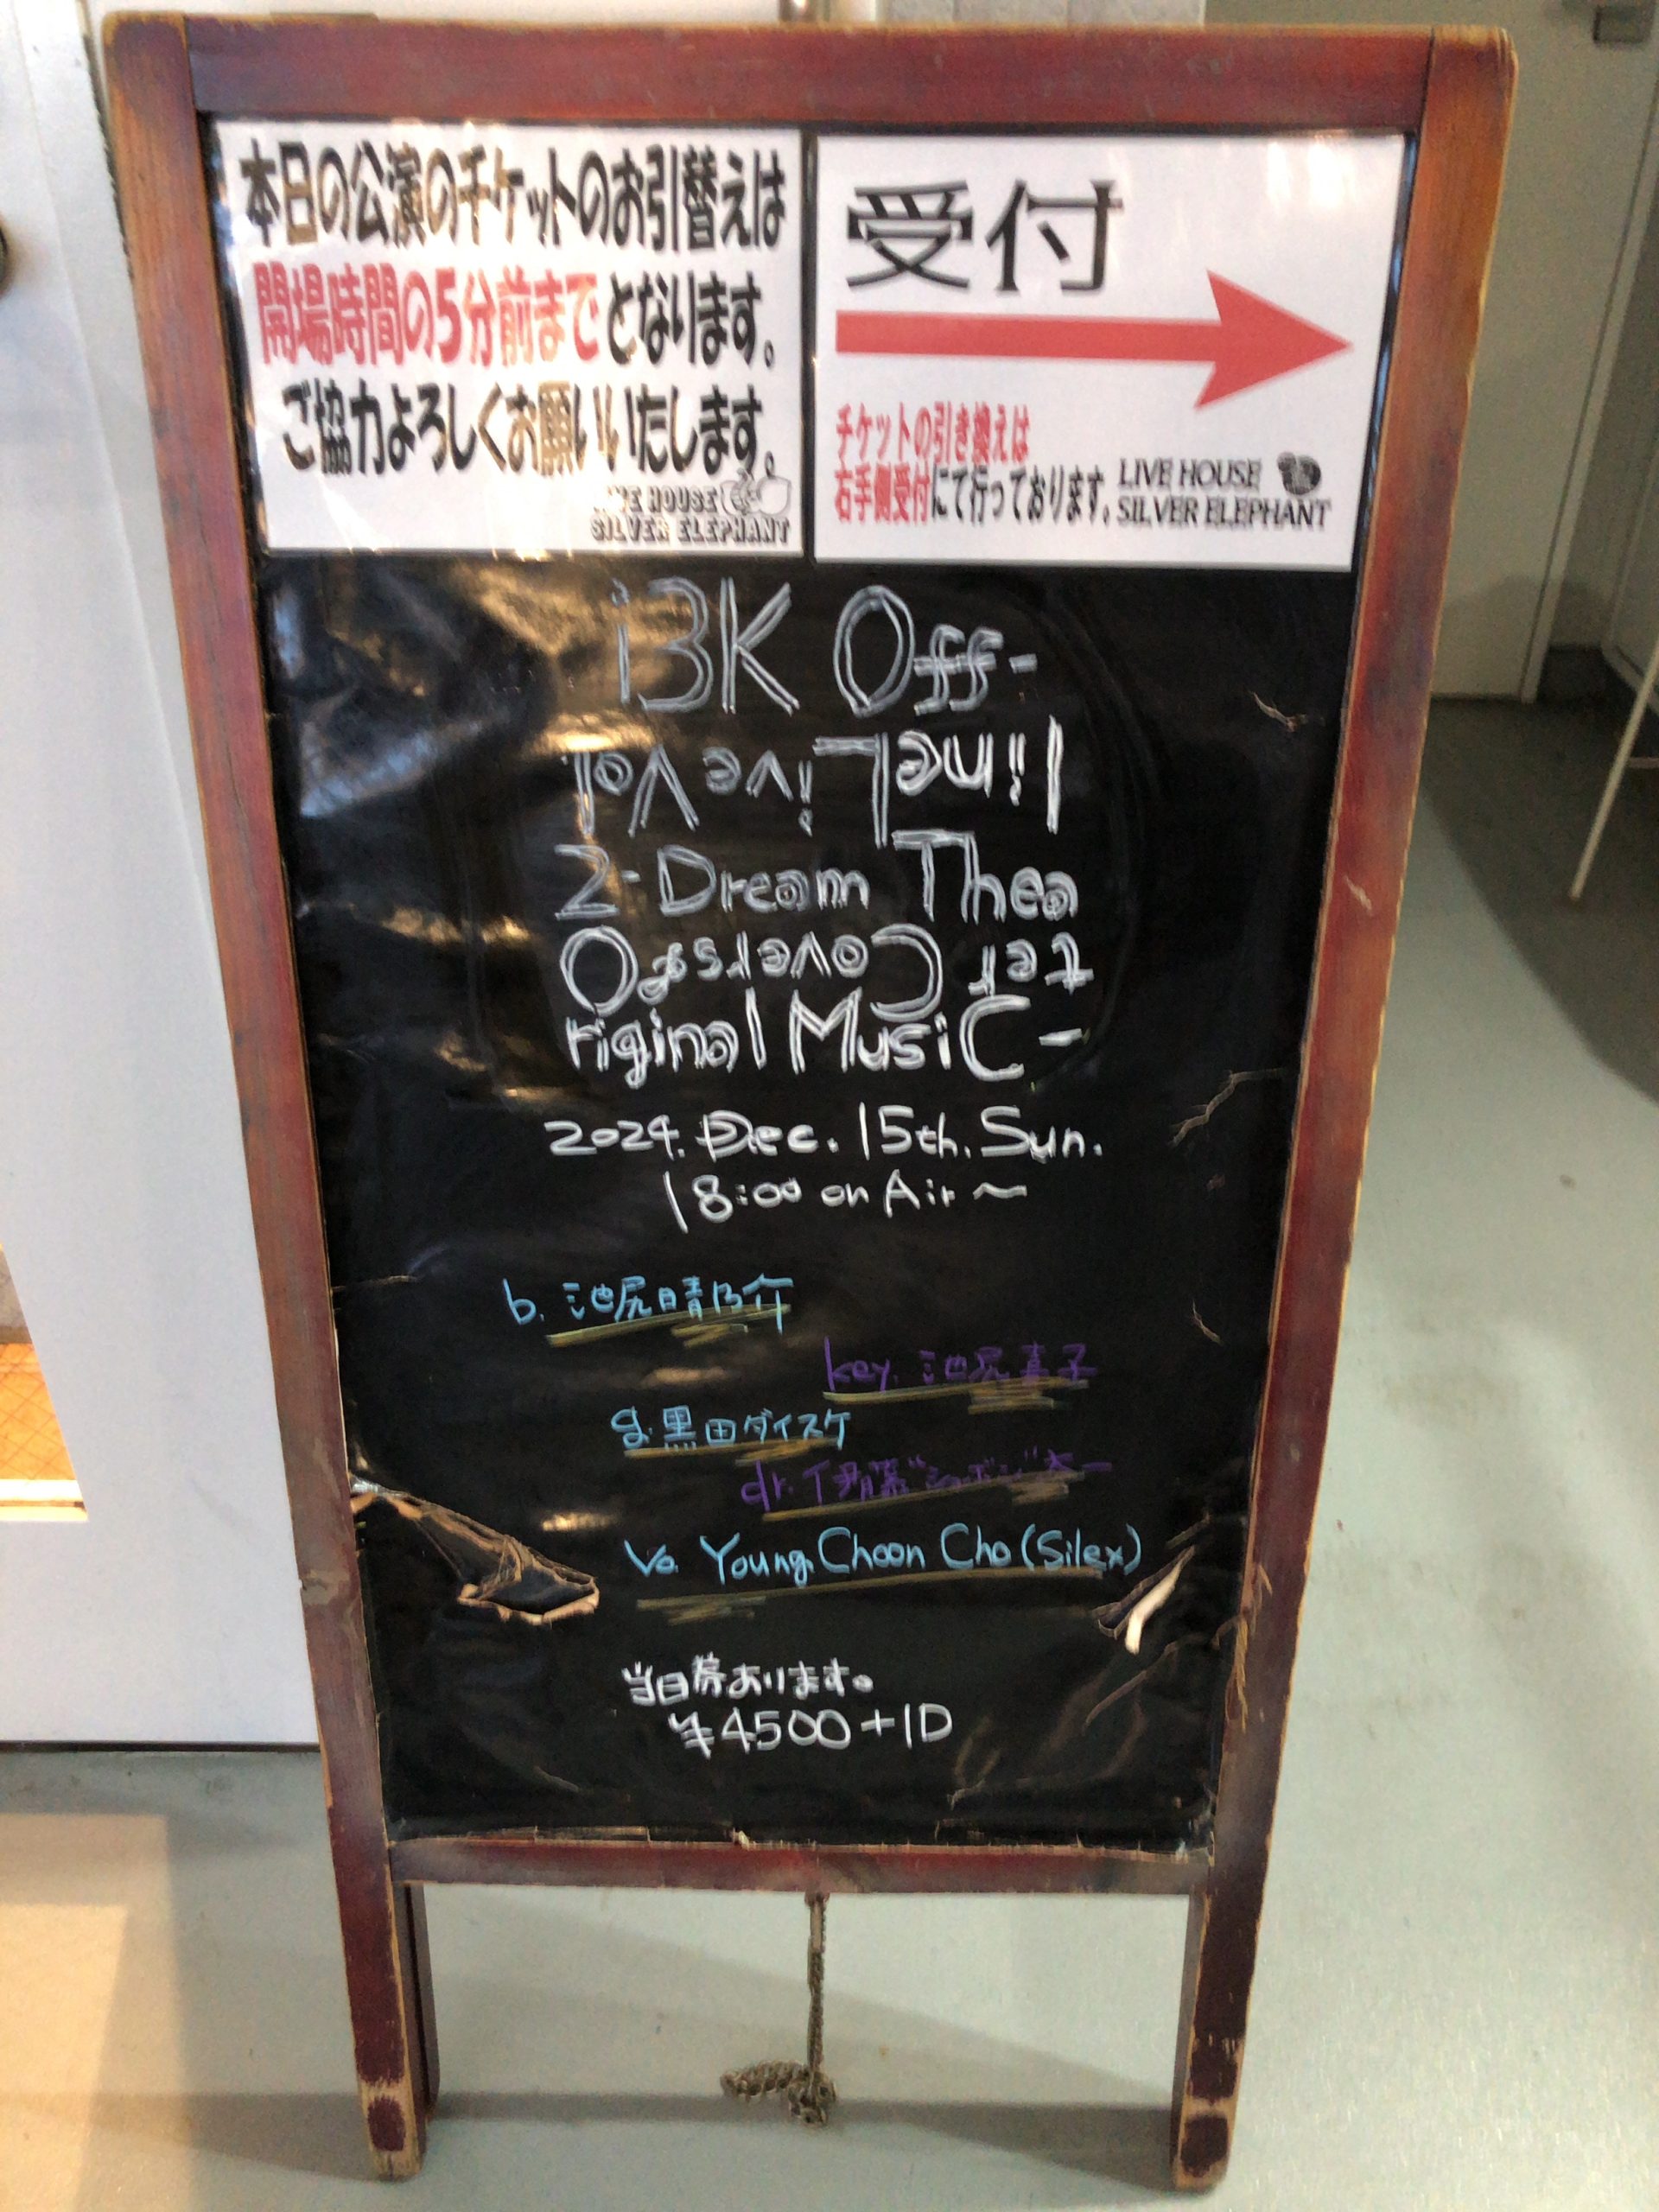 本日の公演のチケットのお引替えは
開場時間の5分前までとなります。
ご協力よろしくお願いいたします。
LIVE HOUSE
SILVER ELEPHANT
受付
チケットの引き換えは
右手側受付にて行っております。
LIVE HOUSE
SILVER ELEPHANT
i3K Off-
line Live Vol.
2-Dream Thea
ter Covers&O
riginal MusiC-
2024. Dec. 15th. Sun.
18:00 on Air～
b. 池尻晴乃介
key. 池尻喜子
g. 黒田ダイスケ
dr. 伊藤"ショボン"太一
Vo. Young Choon Cho (Silex)
当日券あります。
¥4500+1D